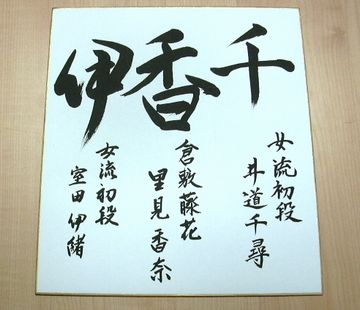 千香伊
女流初段
井道千尋
倉敷藤花
里見香奈
女流初段
室田伊緒